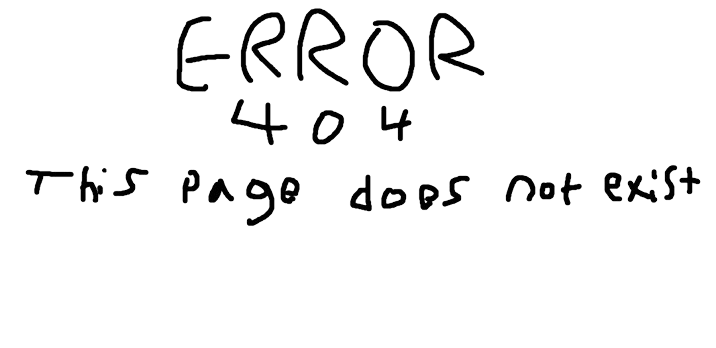 ERROR
404
This page does not exist